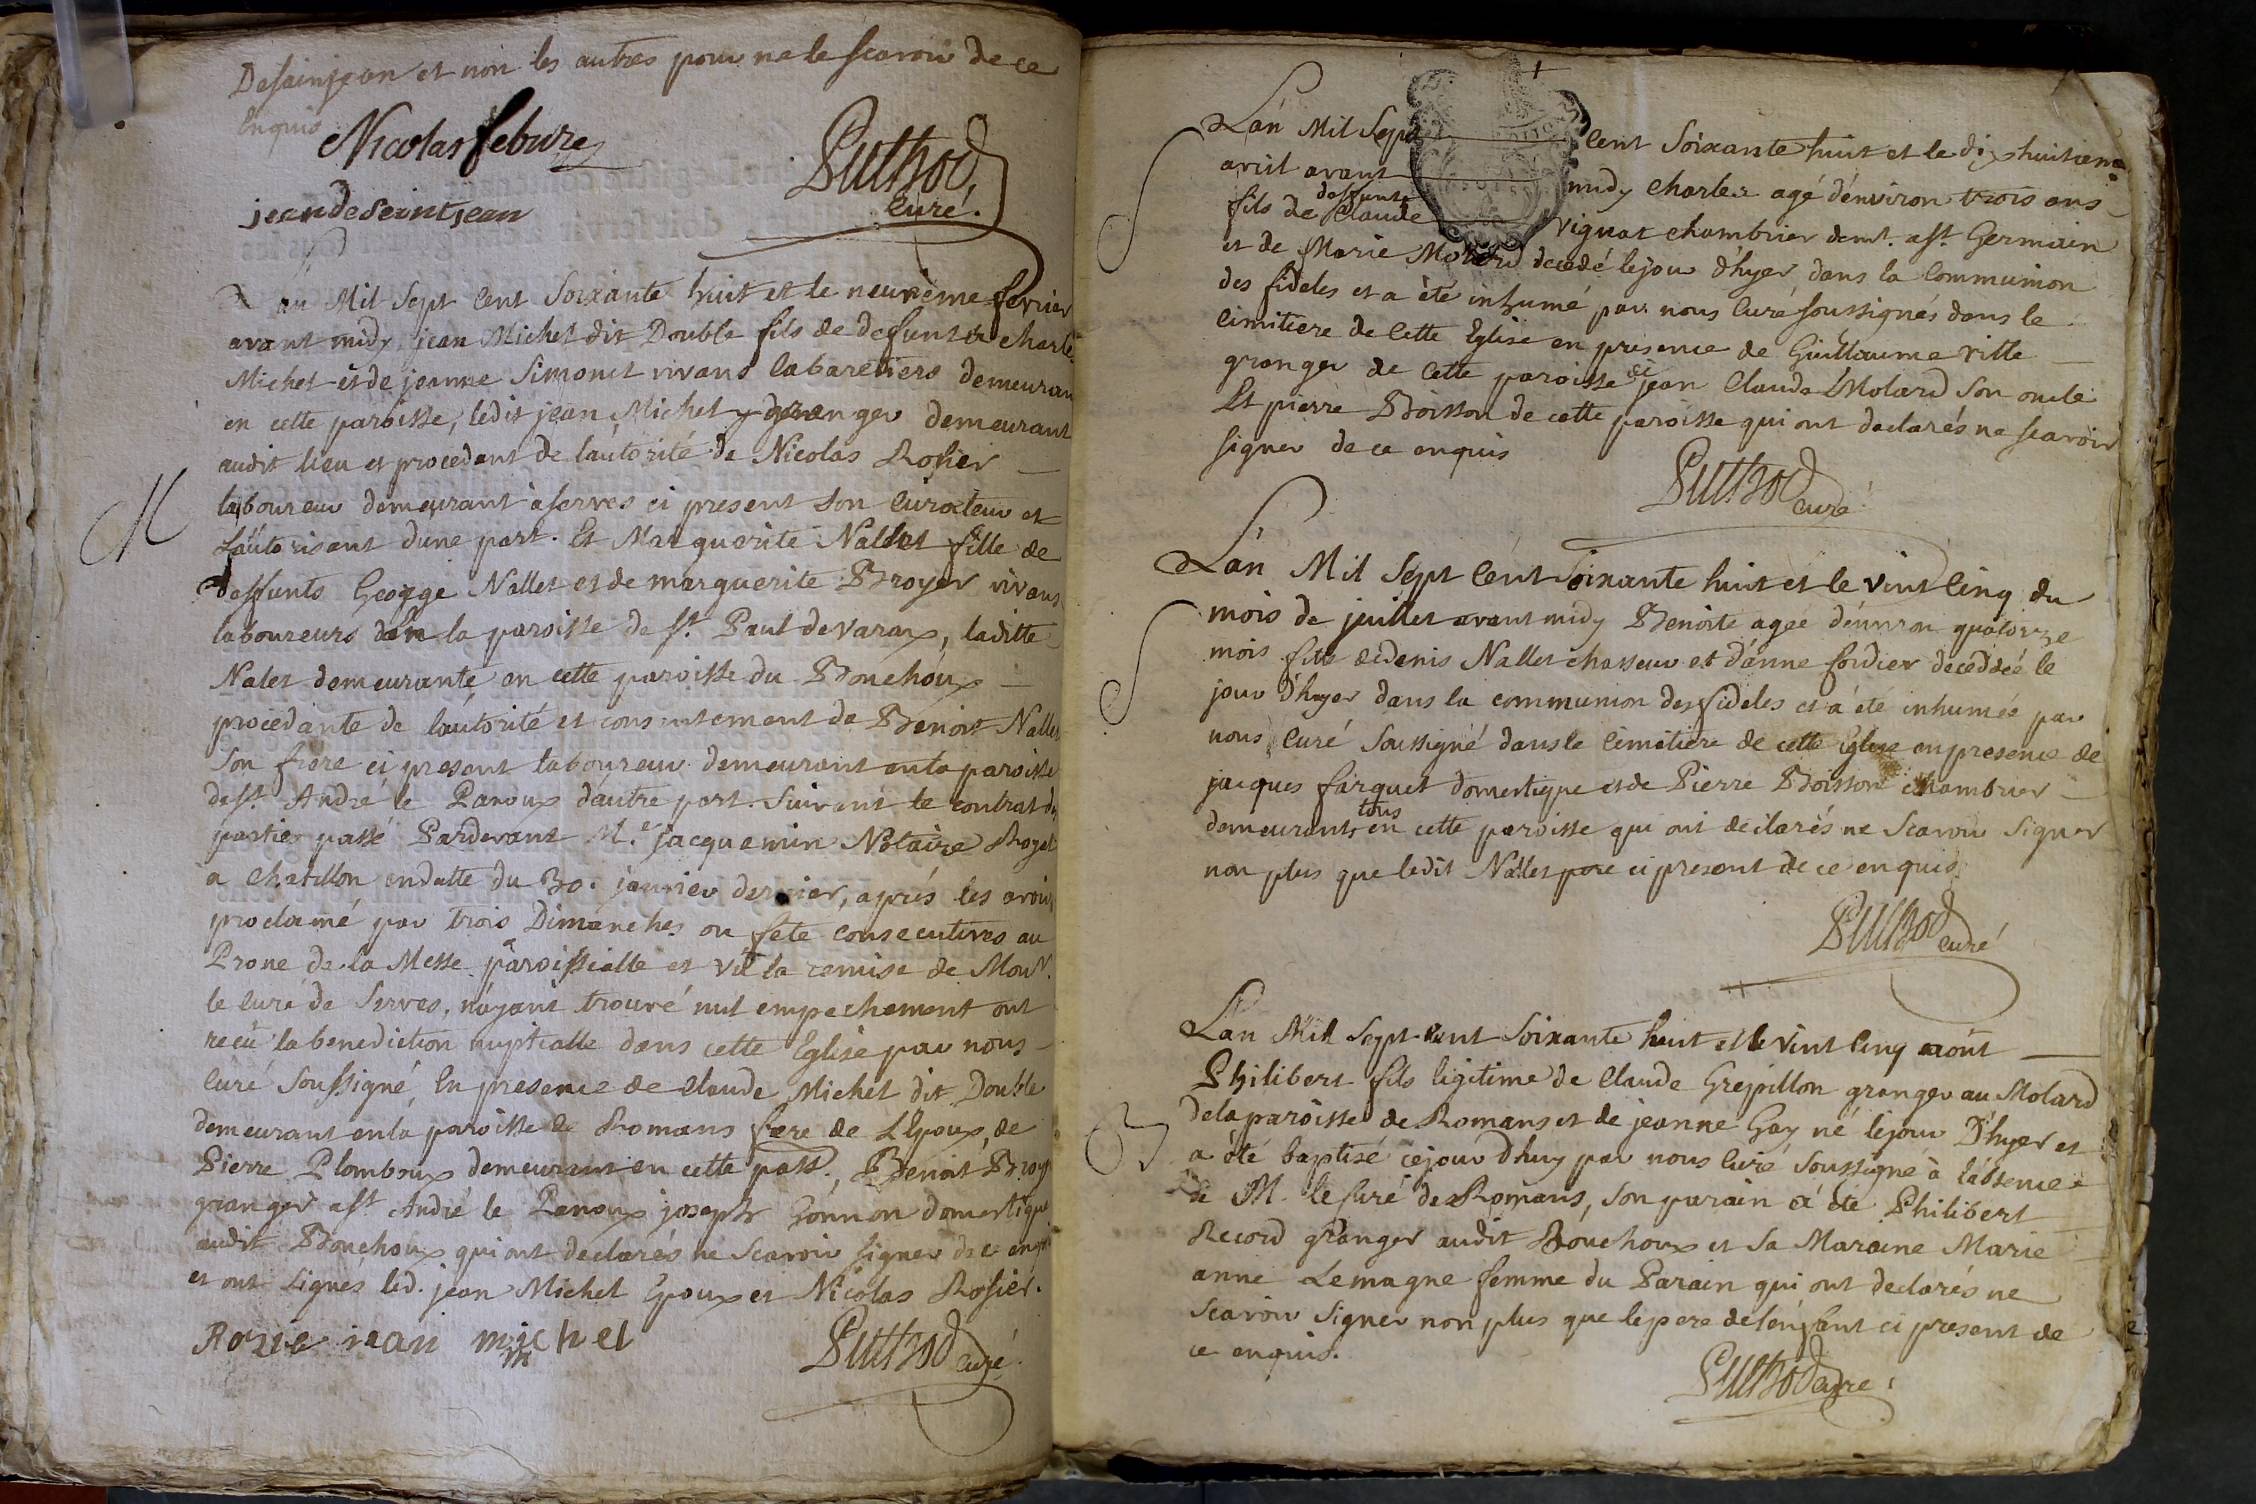 Desainjean et non les autres pour ne le scavoir de ce
Enquis
Nicolas febvre
Puthod,
curé.
jean de Saint jean
L'an Mil Sept Cent Soixante huit et le neuvième fevrier
avant midy jean Michel dit Double fils de defunts charle
Michel et de jeanne Simonet vivans Cabaretiers demeuran
en cette paroisse, ledit jean Michel granger demeurant
audit lieu et procedant de l'autorité de Nicolas Rosier
M
laboureur demeurant à serves ci present son Curateur et
L'autorisant d'une part. Et Marguerite Nallet fille de
deffunts George Nallet et de marguerite Broyer vivans
laboureurs dans la paroisse de St. Paul de Varax, laditte
Nalet demeurante en cette paroisse du Bouchoux
procedante de l'autorité et consentement de Benoit Nallet
son frere ci present laboureur demeurant en la paroisse
de St. André le Panoux d'autre part. Suivant le contrat des
parties passé Pardevant Me. jacquemin Notaire Royal
a Chatillon en datte du 30. janvier dernier, aprés les avoir
proclamé par trois Dimanches ou fete consecutives au
Prone de la Messe paroissialle et vû la remise de Monr.
le Curé de Serves, n'ayant trouvé nul empechement ont
recû la benediction nuptialle dans cette Eglise par nous
Curé Soussigné, En presence de Claude Michel dit Double
demeurant en la paroisse de Romans frere de L'Epoux, de
Pierre Plomboux demeurant en cette passe., Benoit Broy
granger a St André le Panoux joseph Gonnon domestique
audit Bouchoux qui ont declarés ne scavoir signer de ce enquis
et ont signés led. jean Michel Epoux et Nicolas Rosier.
Rozie jean michel
Puthod curé.
L'an Mil Sept Cent Soixante huit et le dix huitieme
avril avant midy Charles agé d'environ trois ans
S
fils de deffunt Claude Vignat chambrier demt. a St. Germain
et de Marie Molard decedé le jour d'hyer dans la Communion
des fideles et a été inhumé par nous Curé soussignés dans le
Cimitiere de Cette Eglise en presence de Guillaume Ville
granger de Cette paroisse de jean Claude Molard son oncle
Et pierre Boisson de cette paroisse qui ont declarés ne scavoir
signer de ce enquis
Puthod curé
L'an Mil Sept Cent Soixante huit et le vint Cinq du
S
mois de juillet avant midy Benoite agée d'environ quatorze
mois fille de denis Nallet chasseur et d'anne fordier deceddée le
jour d'hyer dans la communion des fideles et a été inhumée par
nous Curé Soussigné dans le Cimetiere de cette Eglise en presence de
jacques farguet domestique et de Pierre Boisson chambrier
demeurants tous en cette paroisse qui ont declarés ne Scavoir Signer
non plus que ledit Nallet pere ci present de ce enquis
Puthod curé
L'an Mil Sept Cent Soixante huit et le vint Cinq août
Philibert fils ligitime de Claude Grepillon granger au Molard
B
de la paroisse de Romans et de jeanne Gay né le jour D'hyer et
a été baptisé ce jour d'huy par nous Curé soussigné à l'absence
de M. le Curé de Romans, son parain a été Philibert
Record granger audit Bouchoux et sa Maraine Marie
anne Lemagne femme du Parain qui ont declarés ne
scavoir signer non plus que le pere de l'enfant ci present de
ce enquis.
Puthod curé.